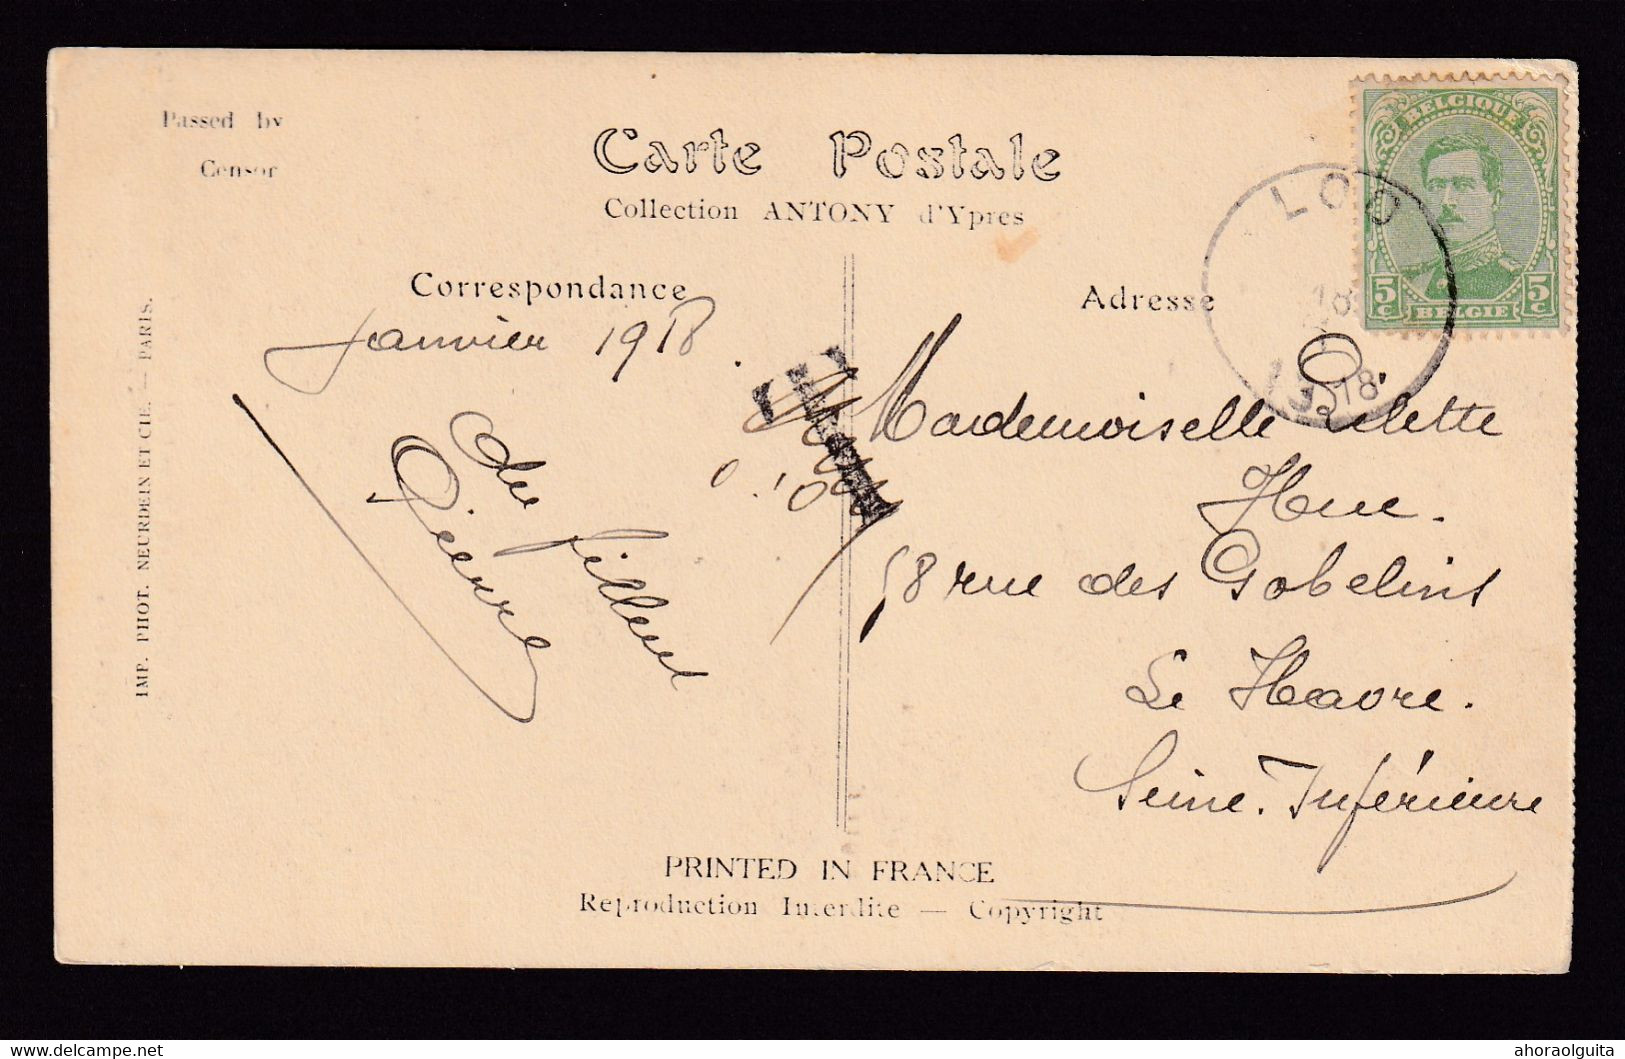 Passed by
Censor
Carte Postale
Collection ANTONY d'Ypres
BELGIQUE
5c 5c
BELGIE
LOO
18
18
Correspondance
Adresse
Janvier 1918.
du filleul
Pierre
Mademoiselle
Hue.
58 rue des Gobelins
Le Havre.
Seine-Inférieure
IMP. PHOT. NEURDEIN ET CIE. — PARIS.
PRINTED IN FRANCE
Reproduction Interdite — Copyright
delcampe.net
ahoraolguita